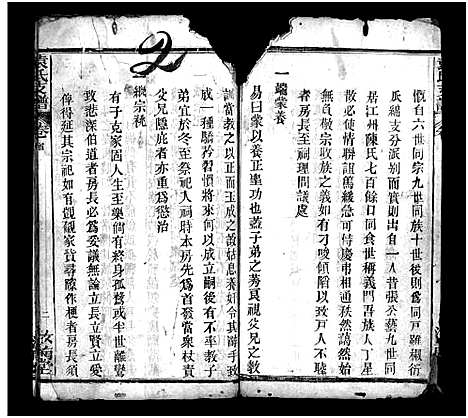 慨自六世同宗九世同族十世後則同戶雖椒衍
瓜緜支分派別而實則出自一人昔張公藝九世同
居江州陳氏七百餘口同食世稱義門吾族人丁星
散必使情聯誼篤緩急可恃慶弔相通藹然油然始
無愧敬宗收族之義如有刁唆領訛以致戶人不睦
者房長至人祠理問議處
一端蒙養
易曰蒙以養正聖功也蓋子弟之秀良視父兄之教
訓當教之以正而玉成之故姑息養奸令其游手致
成一種驕矜習慣將來何以成立嗣後有不率教子
弟宜於冬至祭祀人祠時本房先為首發當衆杖責
父兄隱庇者亦重為懲治
一繼宗祧
有子克家固人生至樂倘有終身孤煢或半世離鸞
致悲深伯道者房長必為妥議無論立長立賢立愛
俾得延其宗祀如有覬覦家貲尋隙作梗者房長須
袁氏支譜 卷
二
2